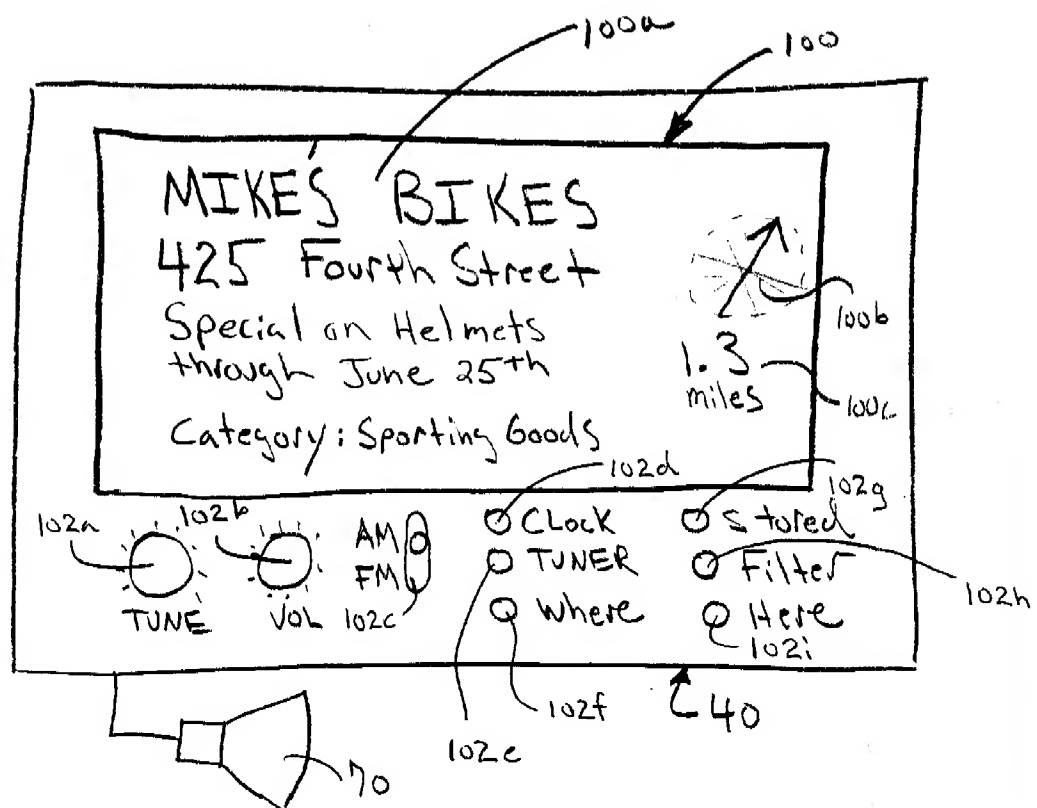 100a
100
MIKE'S BIKES
425 Fourth Street
Special on Helmets
through June 25th
Category: Sporting Goods
100b
1.3
miles
100c
102d
102g
102a
102b
AM
FM
102c
TUNE
VOL
CLock
TUNER
Where
Stored
Filter
Here
102h
102i
102f
102e
40
70